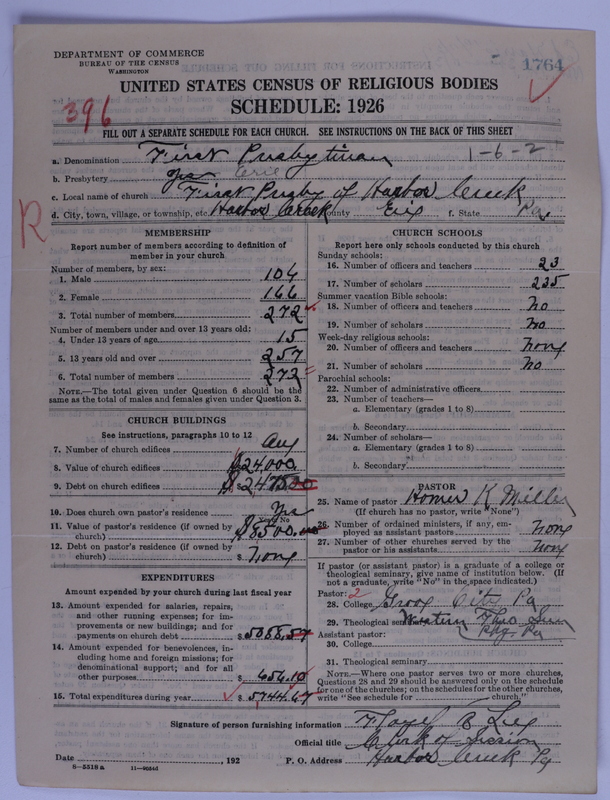 DEPARTMENT OF COMMERCE
BUREAU OF THE CENSUS
WASHINGTON
1764
UNITED STATES CENSUS OF RELIGIOUS BODIES
SCHEDULE: 1926
396
FILL OUT A SEPARATE SCHEDULE FOR EACH CHURCH. SEE INSTRUCTIONS ON THE BACK OF THIS SHEET
a. Denomination First 1-6-2
b. Presbytery Erie
c. Local name of church First Presby of Harbor Creek
d. City, town, village, or township, etc. Harbor Creek County Erie f. State Pa.
R
MEMBERSHIP
Report number of members according to definition of
member in your church
Number of members, by sex:
1. Male 104
2. Female 166
3. Total number of members 272
Number of members under and over 13 years old:
4. Under 13 years of age 15
5. 13 years old and over 257
6. Total number of members 272
NOTE.—The total given under Question 6 should be the
same as the total of males and females given under Question 3.
CHURCH BUILDINGS
See instructions, paragraphs 10 to 12
7. Number of church edifices
8. Value of church edifices $24,000
9. Debt on church edifices $
10. Does church own pastor's residence? Yes
11. Value of pastor's residence (if owned by
church) $8500
12. Debt on pastor's residence (if owned by
church) $ none
EXPENDITURES
Amount expended by your church during last fiscal year
13. Amount expended for salaries, repairs,
and other running expenses; for im-
provements or new buildings; and for
payments on church debt $
14. Amount expended for benevolences, in-
cluding home and foreign missions; for
denominational support; and for all
other purposes $
15. Total expenditures during year $5744.67
CHURCH SCHOOLS
Report here only schools conducted by this church
Sunday schools:
16. Number of officers and teachers 23
17. Number of scholars 225
Summer vacation Bible schools:
18. Number of officers and teachers no
19. Number of scholars no
Week-day religious schools:
20. Number of officers and teachers none
21. Number of scholars no
Parochial schools:
22. Number of administrative officers
23. Number of teachers—
a. Elementary (grades 1 to 8)
b. Secondary
24. Number of scholars—
a. Elementary (grades 1 to 8)
b. Secondary
PASTOR
25. Name of pastor Homer K Miller
(If church has no pastor, write "None")
26. Number of ordained ministers, if any, em-
ployed as assistant pastors none
27. Number of other churches served by the
pastor or his assistants none
If pastor (or assistant pastor) is a graduate of a college or
theological seminary, give name of institution below. (If
not a graduate, write "No" in the space indicated.)
Pastor: 2
28. College Grove City Pa
29. Theological seminary Western Theo Sem
Pbg. Pa
Assistant pastor:
30. College
31. Theological seminary
NOTE.—Where one pastor serves two or more churches,
Questions 28 and 29 should be answered only on the schedule
for one of the churches; on the schedules for the other churches,
write "See schedule for church."
Signature of person furnishing information
Official title Clerk of Session
Date , 192 P. O. Address Harbor Creek Pa
8-5318a 11-9034d